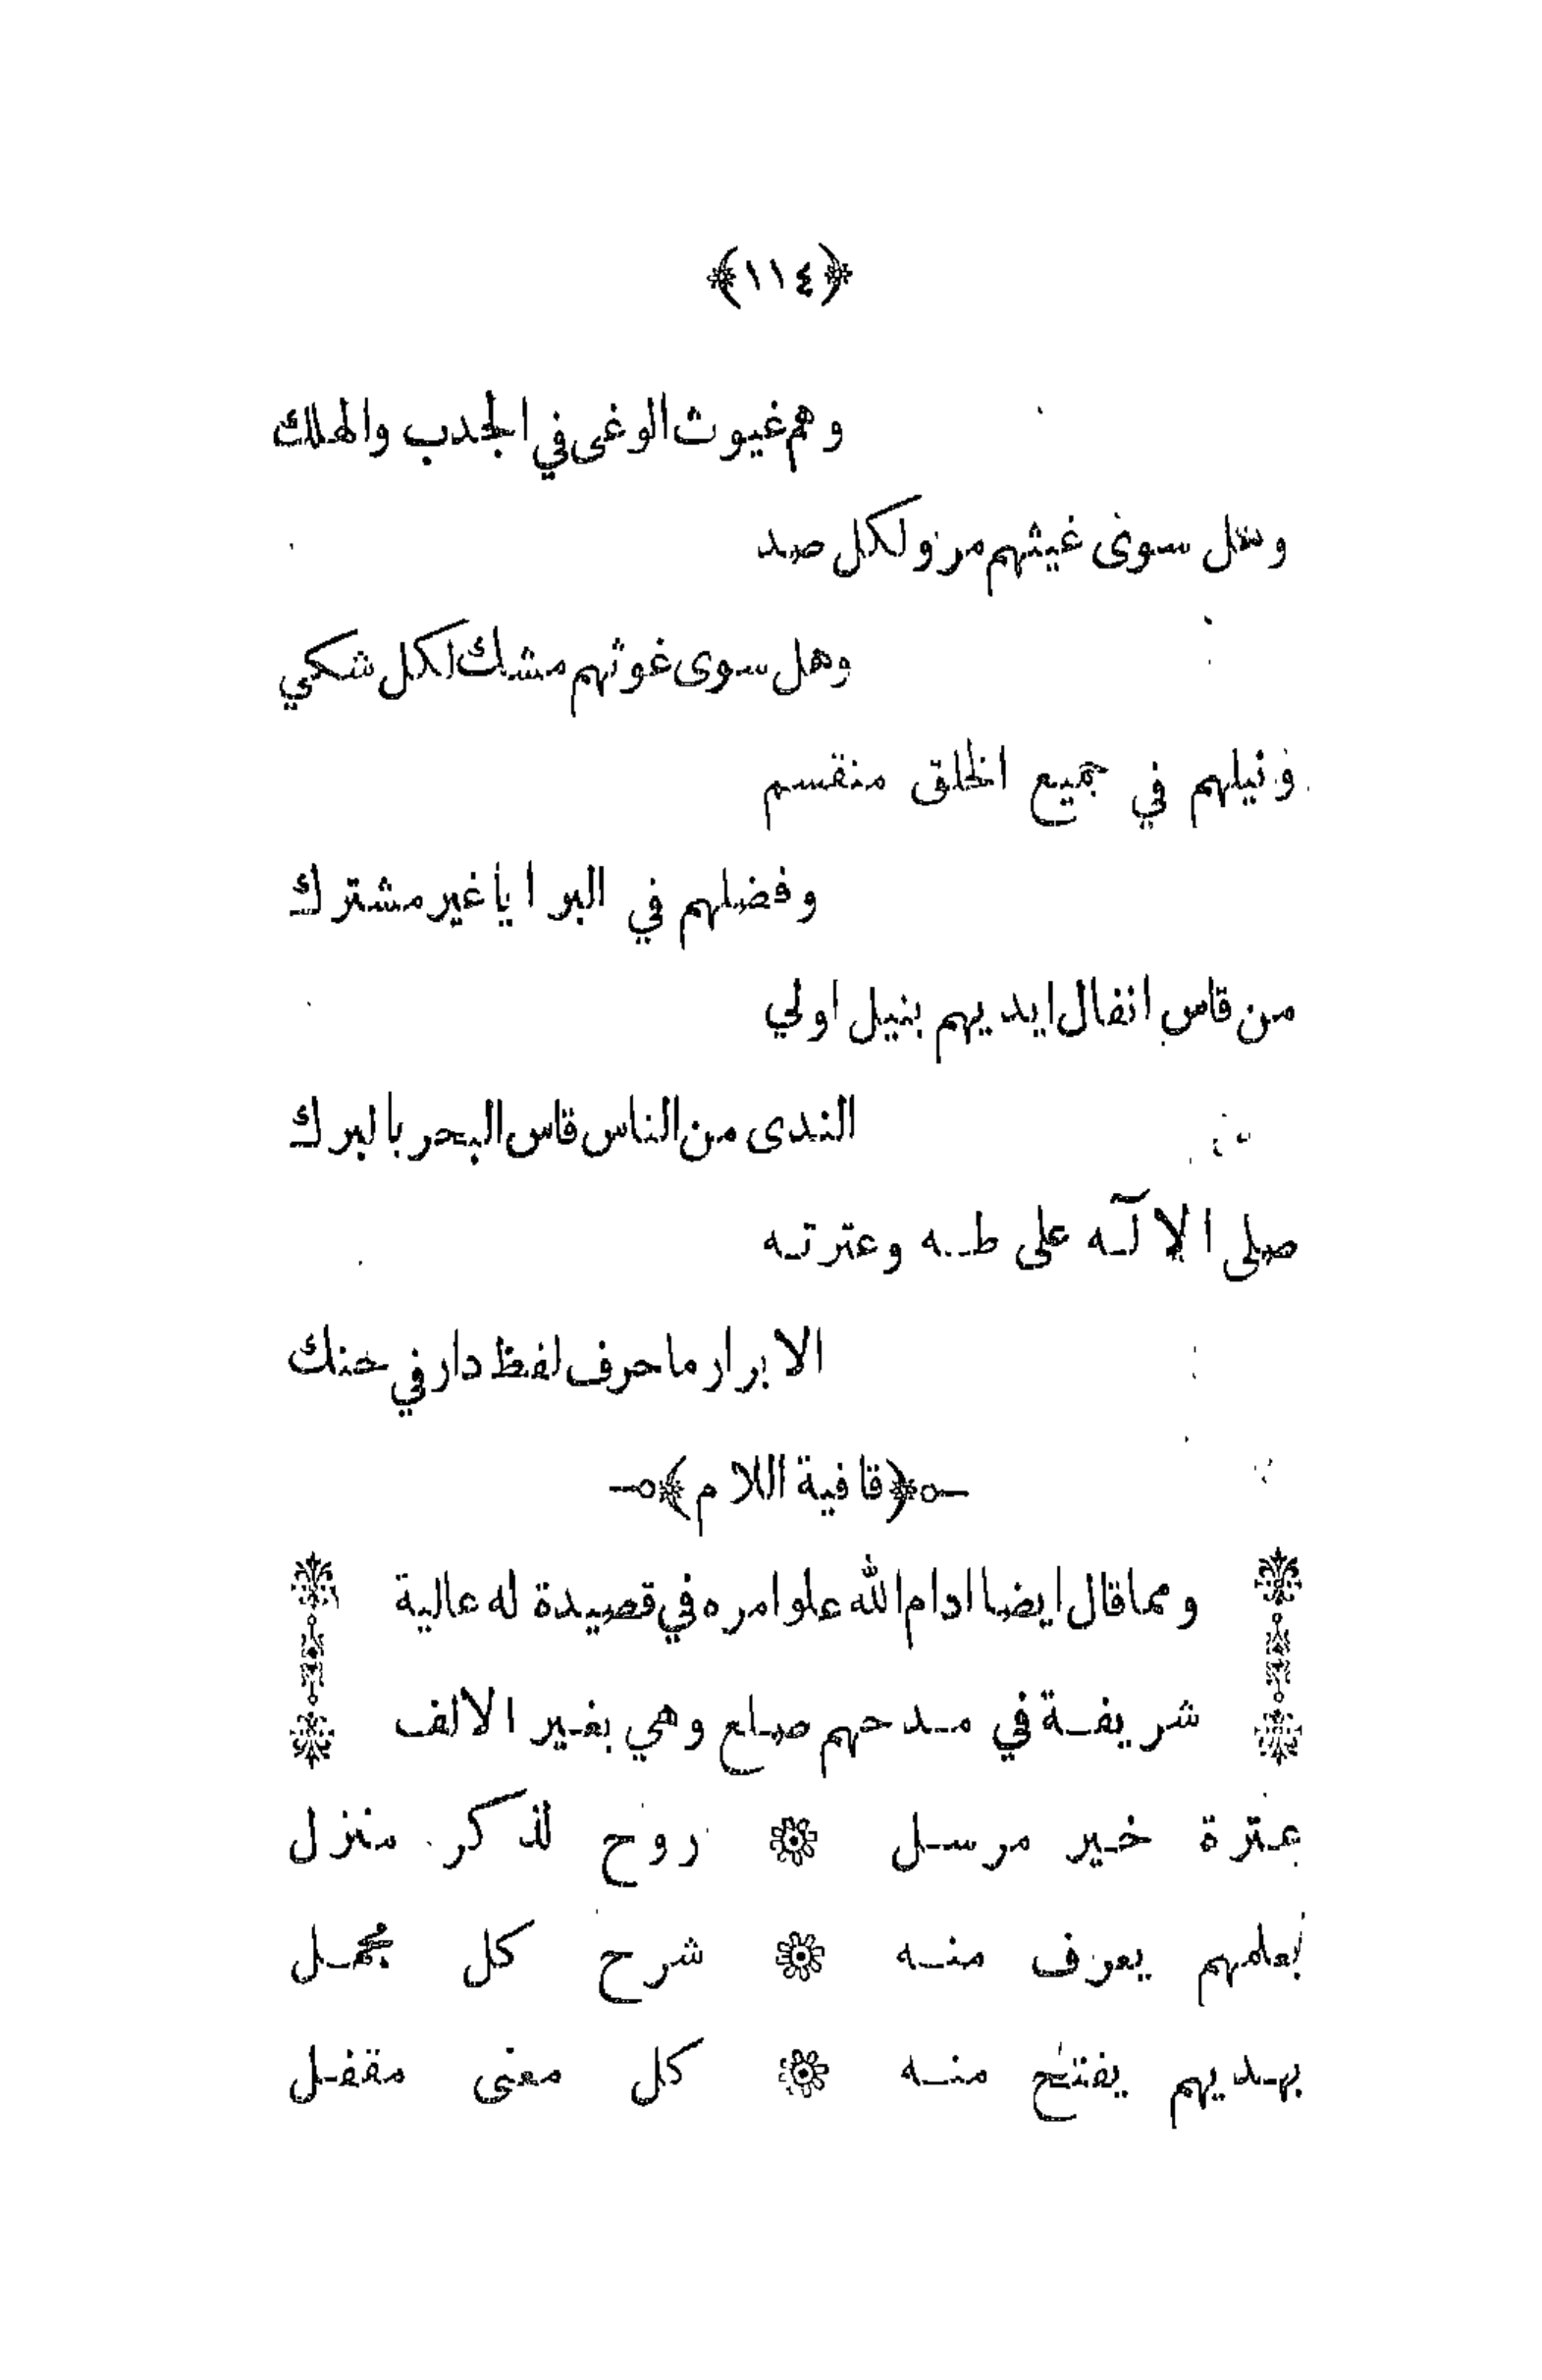 ﴿١١٤﴾
وهم غيوث الوغى في الجدب والهلك
وهل سوى غيثهم مرو لكل صد
وهل سوى غوثهم مشك لكل شكي
ونيلهم في جميع الخلق منقسم
وفضلهم في البرايا غير مشترك
من قاس انفال ايديهم بنيل اولي
الندى من الناس قاس البحر بالبرك
صلى الالٓه على طه وعترته
الابرار ما حرف لفظ دار في حنك
﴿قافية اللام﴾
ومما قال ايضا ادام الله علو امره في قصيدة له عالية
شريفة في مدحهم صلع وهي بغير الالف
عترة خير مرسل ۞ روح لذكر منزل
بعلمهم يعرف منه ۞ شرح كل مجمل
بهديهم يفتتح منه ۞ كل معنى مقفل